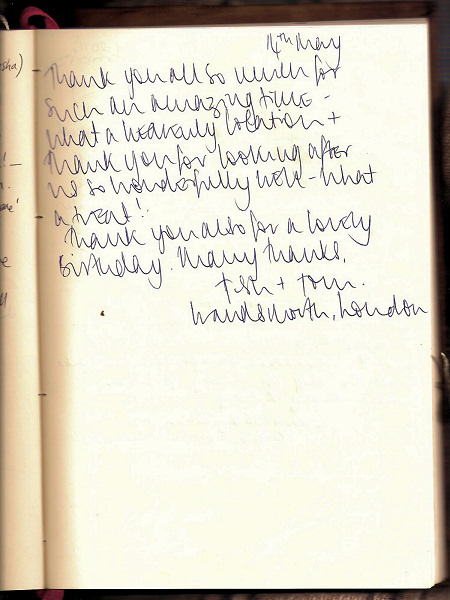 14th May
Thank you all so much for
such an amazing time -
what a heavenly location +
thank you for looking after
us so wonderfully well - what
a treat!
Thank you also for a lovely
birthday. Many thanks,
+ Tom.
Wandsworth, London